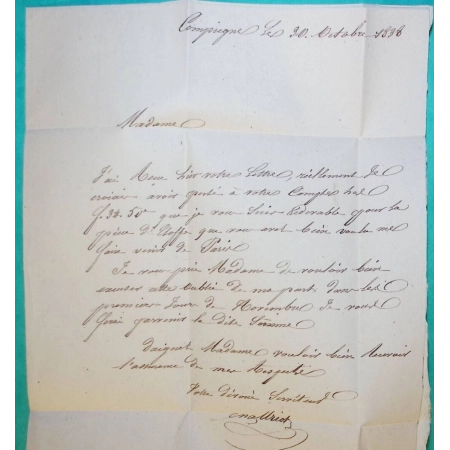 Compiegne Le 30 Octobre 1838
Madame
J'ai Reçue hier votre Lettre, réellement Je
croiais avoir porté à votre Compte les
f. 34.50c que je vous suis Redevable pour la
pièce d'Etoffe que vous avez bien voulu me
faire venir de Paris
Je vous prie Madame de vouloir bien
excuser cette oublie de ma part dans les
premiers Jours de Novembre Je vous
ferai parvenir la dite Somme
daignez Madame vouloir bien Recevoir
l'assurance de mes Respects
Votre dévoué Serviteur